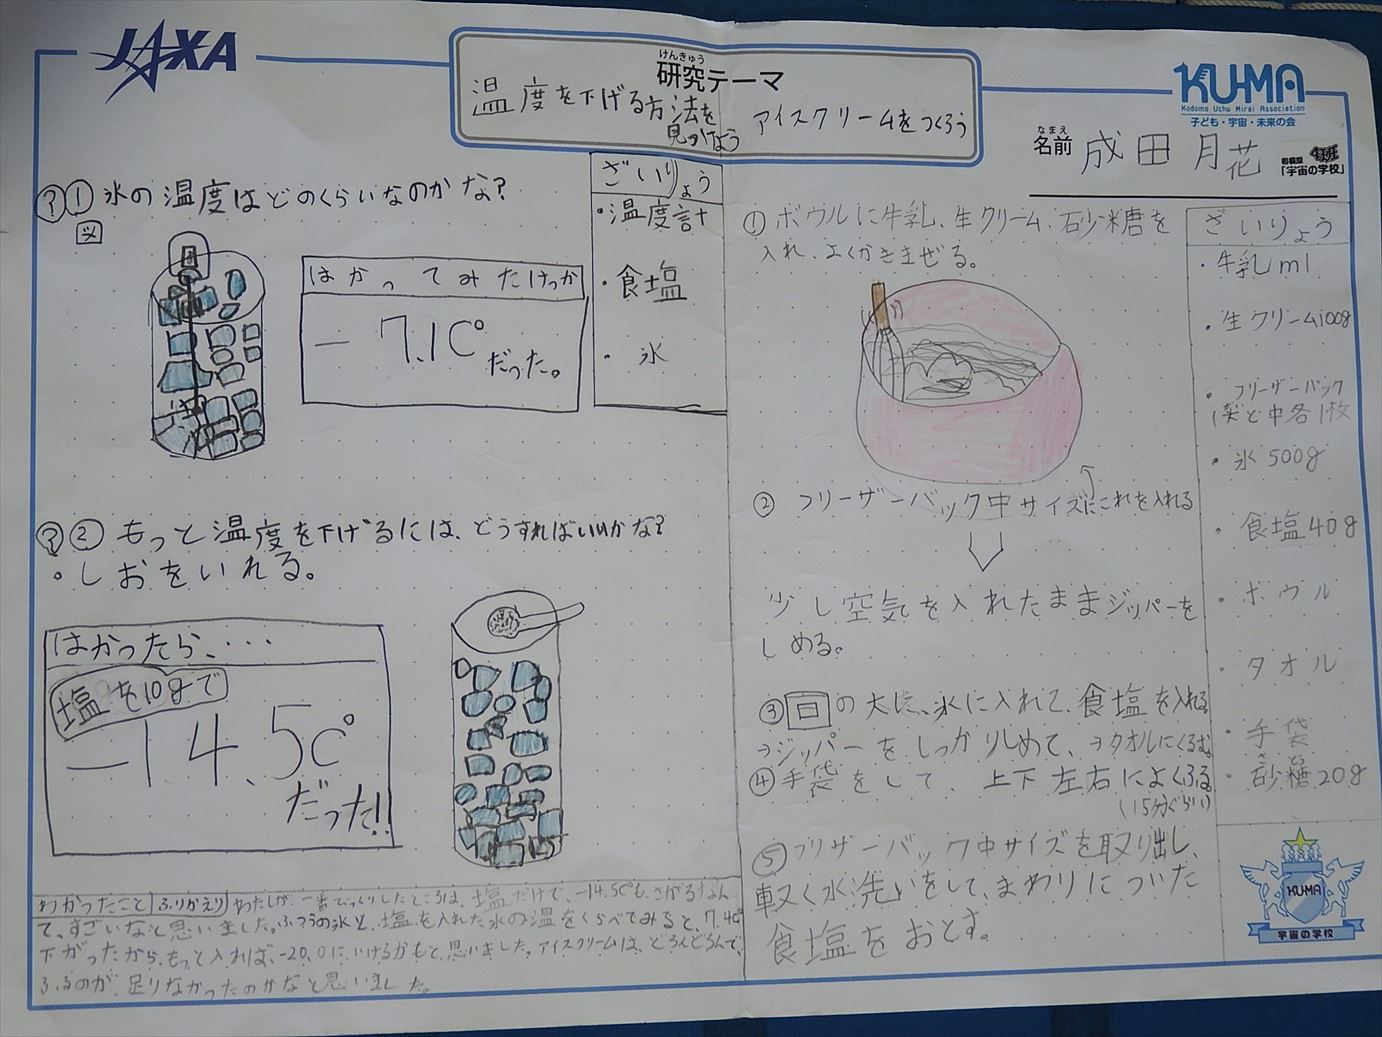 JAXA
けんきゅう
研究テーマ
温度を下げる方法を
見つけよう
アイスクリームをつくろう
KU-MA
Kodomo Uchu Mirai Association
子ども・宇宙・未来の会
なまえ
名前 成田月花
相模原
「宇宙の学校」
?①氷の温度はどのくらいなのかな?
図
はかってみたけっか
-7.1C°
だった。
ざいりょう
・温度計
・食塩
・氷
?②もっと温度を下げるには、どうすればいいかな?
・しおをいれる。
はかったら、・・・
塩を10gで
-14.5C°
だった!!
わかったこと ふりかえり わたしが、一番びっくりしたところは、塩だけで、-14.5C°も、さがるなん
て、すごいなと思いました。ふつうの氷と、塩を入れた氷の温をくらべてみると、7.4C°
下がったから、もっと入れば、-20.0にいけるかもと、思いました。アイスクリームは、どろんどろんで、
ふるのが、足りなかったのかなと思いました。
①ボウルに牛乳、生クリーム、砂糖を
入れ、よくかきまぜる。
②フリーザーバック中サイズにこれを入れる
少し空気を入れたままジッパーを
しめる。
③回の大に、氷に入れて、食塩を入れる
→ジッパーをしっかりしめて、→タオルにくるむ。
④手袋をして、上下左右によくふる。
(15分ぐらい)
⑤フリザーバック中サイズを取り出し、
軽く水洗いをして、まわりについた
食塩をおとす。
ざいりょう
・牛乳ml
・生クリーム100g
・フリーザーバック
大と中各1枚
・氷500g
・食塩40g
・ボウル
・タオル
・手袋
さとう
・砂糖20g
KUMA
宇宙の学校